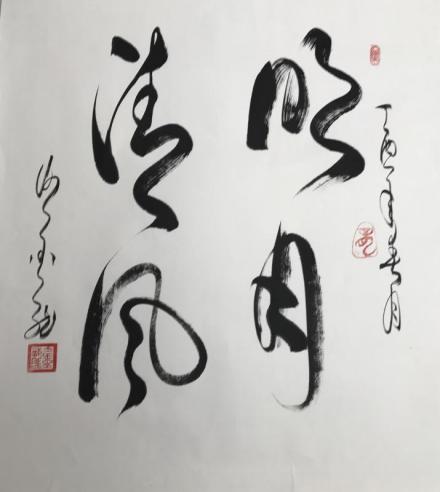 丁酉年春月
明月
清风